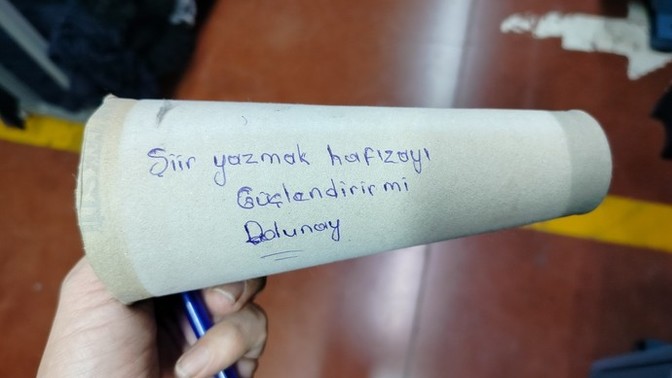 Şiir yazmak hafızayı
Güçlendirir mi
Dolunay